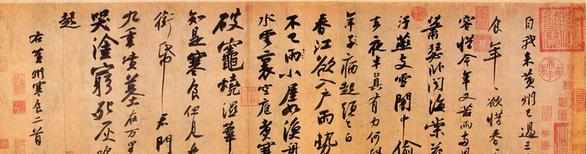 自我來黃州已過三
食年〻欲惜春
容惜今年又苦雨兩月
蕭瑟臥聞海棠花
污燕支雪闇中偷
去夜半真有力何殊
年子病起頭已白
春江欲入戶雨勢
不已雨小屋如漁舟
水雲裏空庖煮寒
破竈燒濕葦
知是寒食但見烏
銜帋君門
九重墳墓在万里
哭塗窮死灰
起
右黃州寒食二首